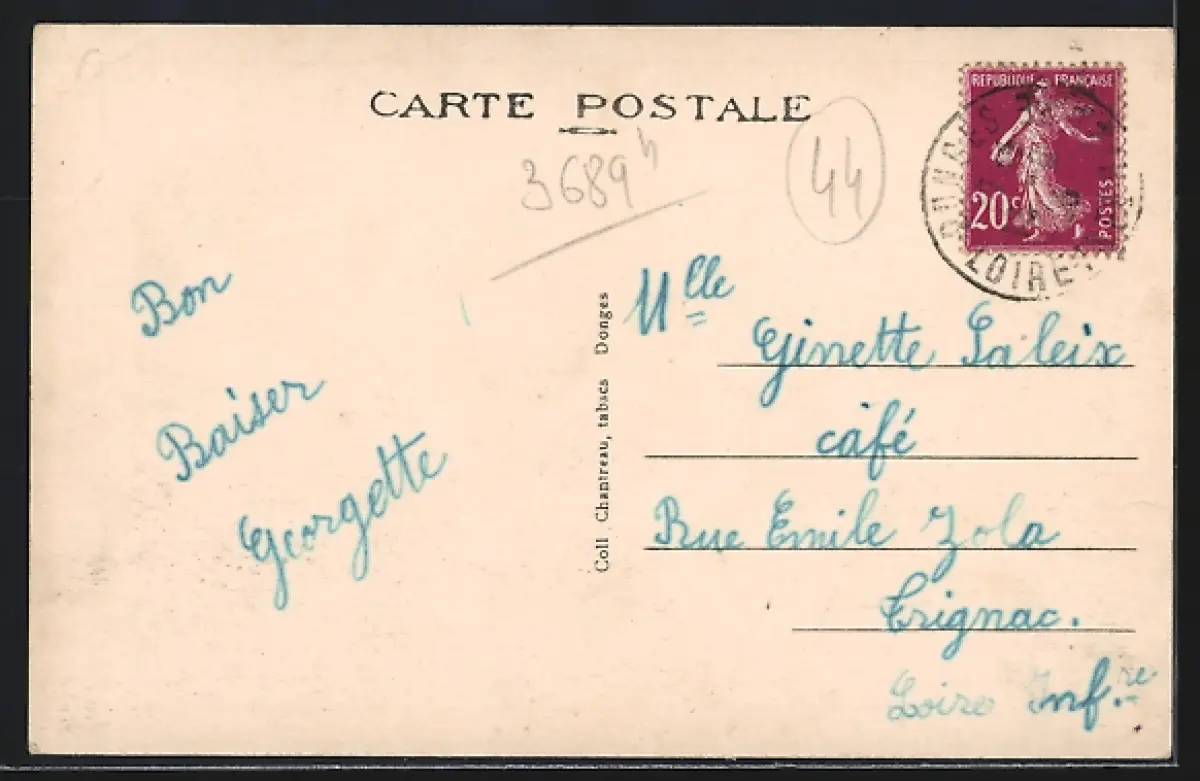 CARTE POSTALE
3689 h
44
REPUBLIQUE FRANÇAISE
20c
POSTES
DONGES
LOIRE
Bon
Baiser
Georgette
Coll. Chantreau, tabacs Donges
Mlle
Ginette Laleix
café
Rue Emile Zola
Trignac.
Loire Infre